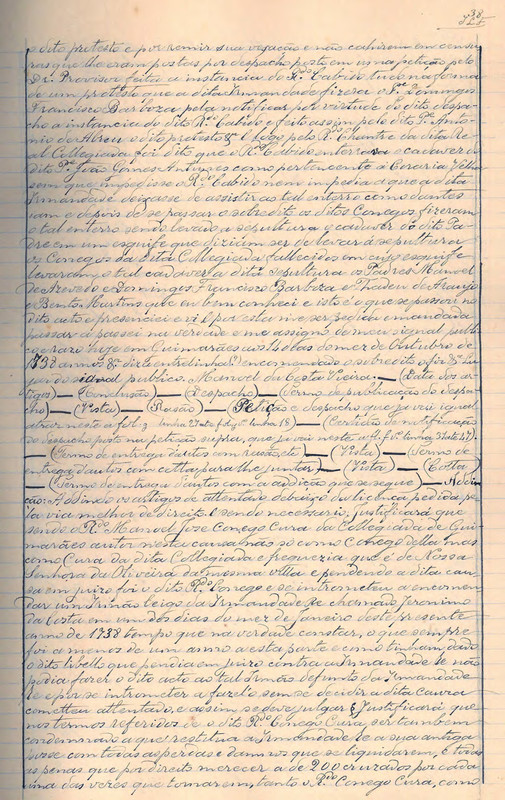 38
o dito protesto e por remir sua vexação e não cahirem em censu
ras que lhe eram postas por despacho posto em uma petição pelo
Dr. Provisor feita a instancia do Rdo Cabido tudo na forma
de um protesto que a dita Irmandade fizera o Pe Domingos
Francisco Barboza pela notificar por virtude do dito despa
cho a instancia do dito Rdo Cabido e feito assim pelo dito Pe Anto
nio de Abreu o dito protesto & e logo pelo Rdo Chantre da dita Re
al Collegiada foi dito que o Rdo Cabido enterrava o cadaver do
dito Pe João Gomes Antunes como pertencente á Coraria Velha
sem que impedisse o Rdo Cabido nem impedia a que a dita
Irmandade deixasse de assistir ao tal enterro como d'antes
e depois de se passar o sobredito os ditos Conegos fizeram
o tal enterro sendo levado a sepultura o cadaver do dito Pa
dre em um esquife que diziam ser de levar á sepultura
os Conegos da dita Collegiada fallecidos em cujo esquife
levaram o tal cadaver á dita sepultura os Padres Manoel
de Azevedo e Domingos Francisco Barboza e Thadeu de Araujo
e Bento Martins que eu bem conheci e isto é o que se passou no
dito acto e presenciei e vi e por esta me ser pedida e mandada
passar a passei na verdade e me assigno do meu signal publi
co e raso hoje em Guimarães aos 14 dias do mez de Outubro de
1738 annos &
signal publico. Manoel da Costa Vieira. — (Data dos ar
tigos) — (Conclusão) — (Despacho) — (Termo de publicação do despa
cho) — (Vista) — (Rasão) — Petição e despacho que já vai igual
atraz neste a fol. linha 27 até f. linha 18) — (Certidão de notificação
do despacho posto na petição supra, que já vai neste
— (Termo de entrega d'autos com rasão, etc) — (Vista) — (Termo de
entrega d'autos com cotta para lhe juntar) — (Vista) — (Cotta)
— (Termo de entrega d'autos com a addição que se segue) — Addi
ção: Addindo os artigos de attentado debaixo da licença pedida pe
la via melhor de direito e sendo necessario. Justificará que
sendo o Rdo Manoel José Conego Cura da Collegiada de Gui
marães autor nesta causa não só como Conego della mas
como Cura da dita Collegiada e freguezia que é de Nossa
Senhora da Oliveira da mesma villa e pendendo a dita cau
sa em juizo foi o dito Rdo Conego e se intrometteu a encomen
dar um Irmão leigo da Irmandade Re chamado Jeronimo
da Costa em um dos dias do mez de Janeiro deste presente
anno de 1738 tempo que na verdade constar, o que sempre
foi a menos de um anno a esta parte e como tinham dado
o dito libello que pendia em juizo contra a Irmandade Re não
podia fazer o dito acto ao tal Irmão defunto da Irmandade
Re e por se intrometter a fazel-o sem se decidir a dita causa
cometteu attentado e assim se deve julgar. E Justificará que
nos termos referidos é o dito Rdo Conego Cura ser tambem
condemnado a que restitua a Irmandade Re a sua antiga
posse com todas as perdas e damnos que se liquidarem, e todas
as penas que por direito merecer a de 200 cruzados por cada
uma das vezes que tornar em tanto o Rdo Conego Cura, como